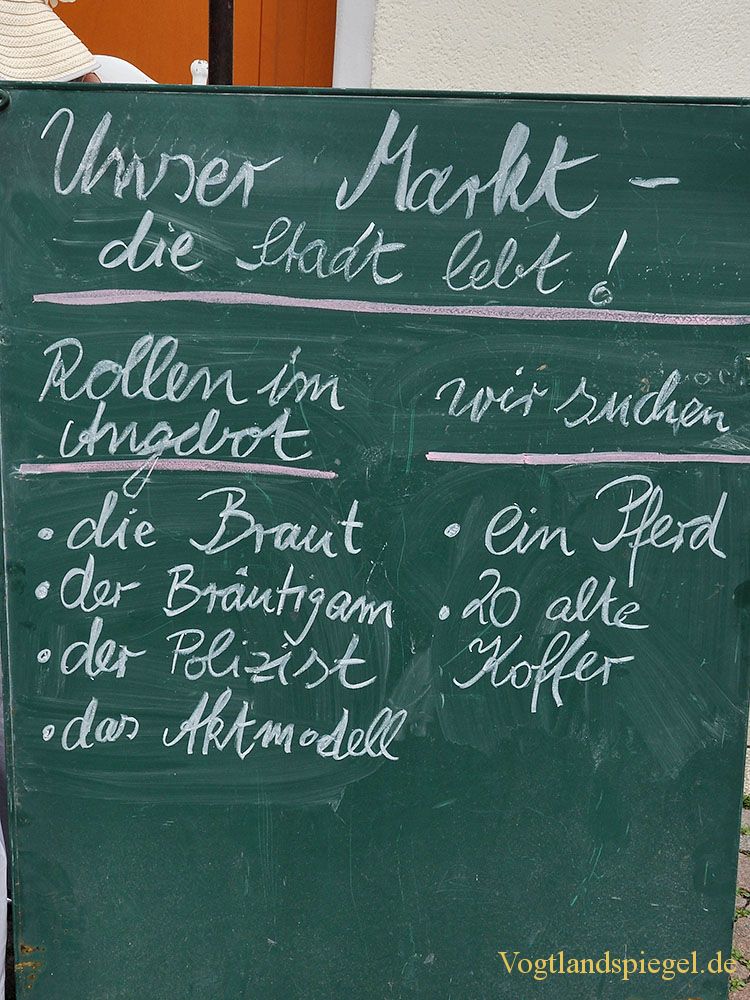 Unser Markt –
die Stadt lebt!
Rollen im
Angebot
• die Braut
• der Bräutigam
• der Polizist
• das Aktmodell
wir suchen
• ein Pferd
• 20 alte
Koffer
Vogtlandspiegel.de